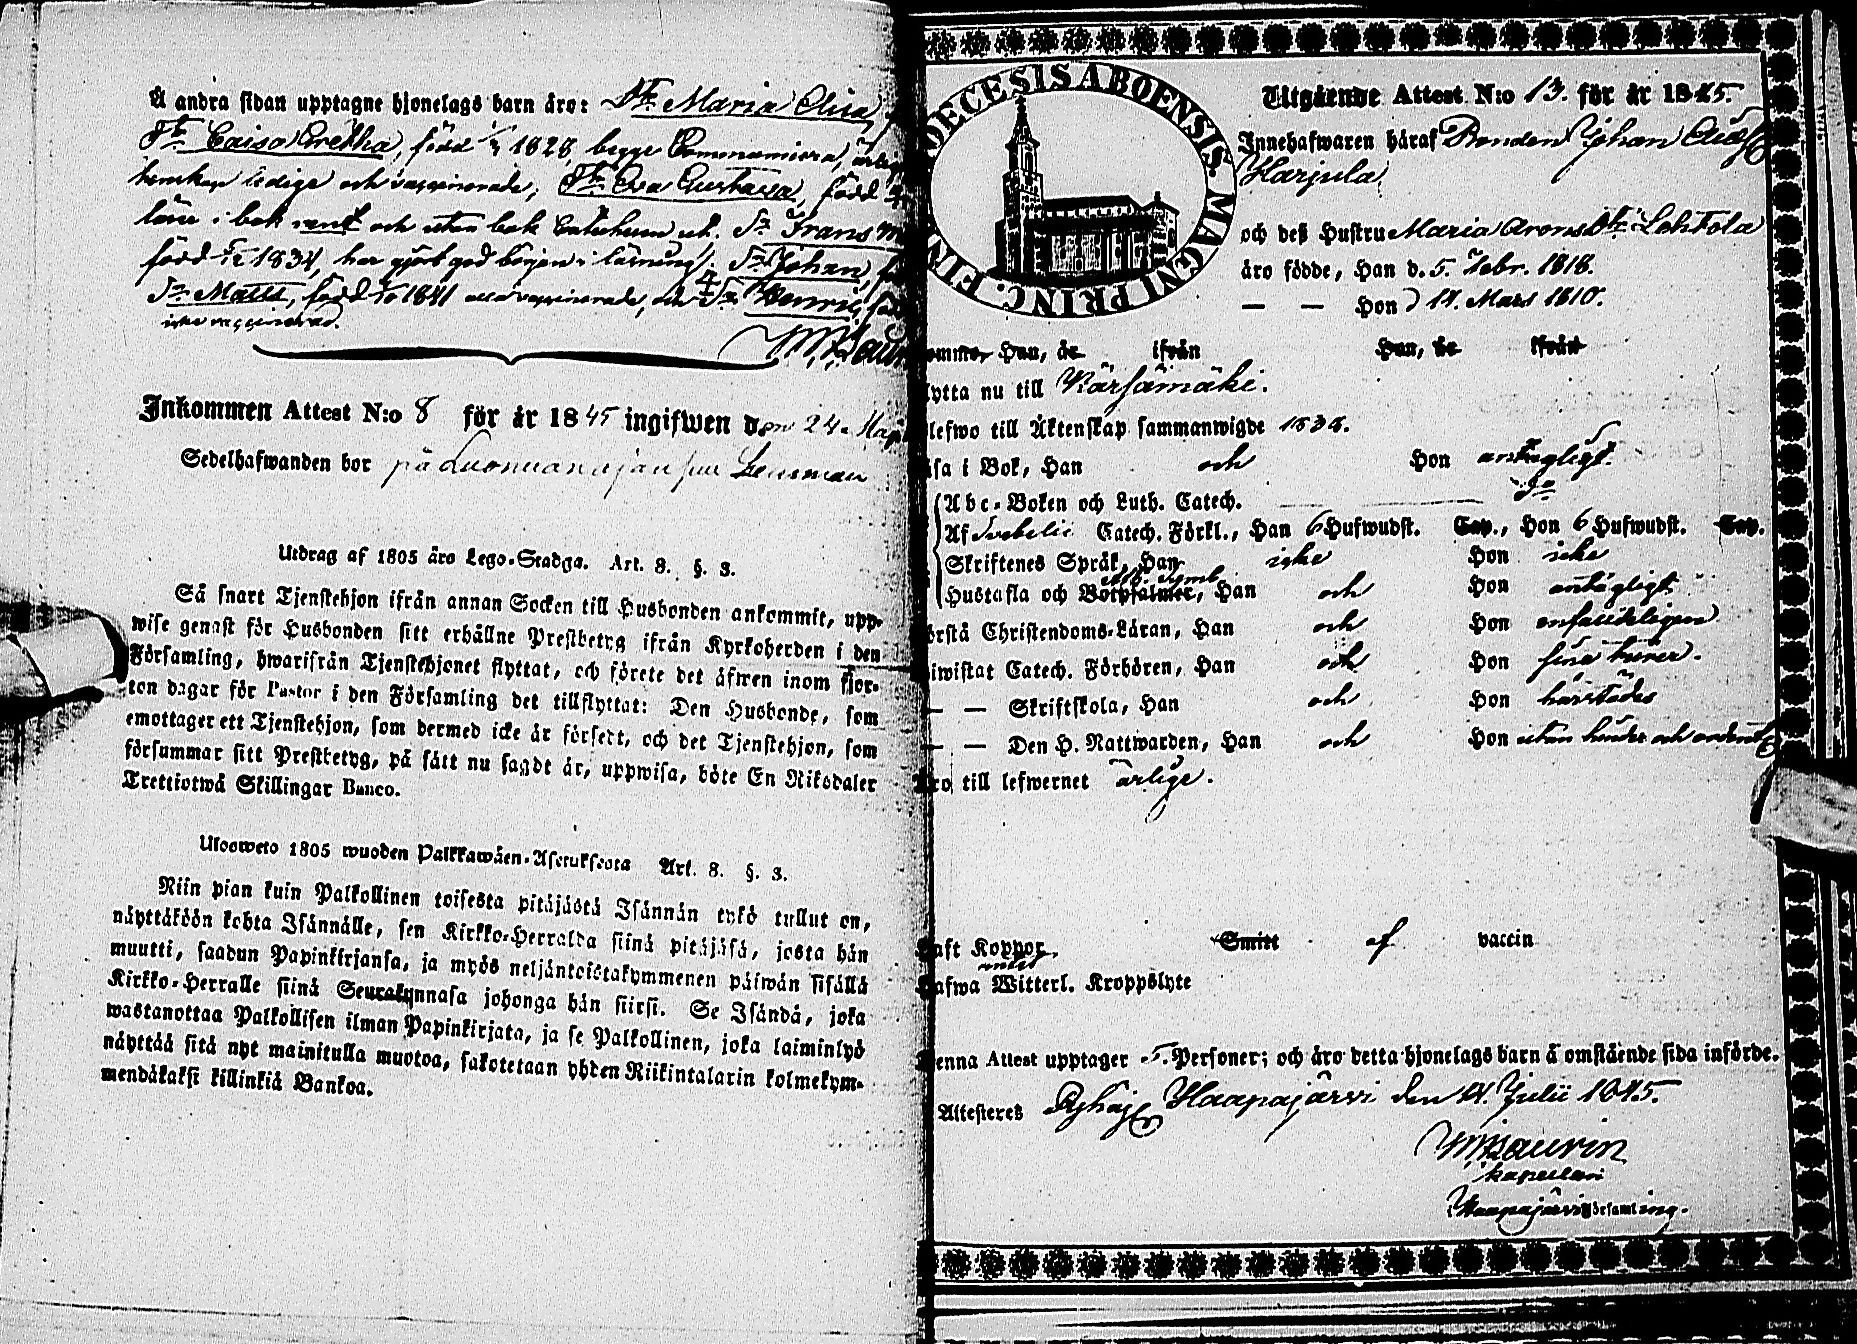 Å andra sidan upptagne hjonelags barn äro: Dr. Maria Elisa,
Dr. Caisa Gretha, född 1828, begge Communicera,
kunskap ledige och vaccinerade; Dr. Eva Gustava, född
läser i bok rent och utan bok Catechesen ut. Sr. Frans
född 1834, har gjort god början i läsning; Sr. Johan,
Sr. Matts, född 1841 alla vaccinerade, och Sr. Henric, född
icke vaccinerad.
Inkommen Attest N:o 8 för år 1845 ingifwen den 24 Maji
Sedelhafwanden bor på
Utdrag af 1805 åro Lego-Stadga. Art. 8. §. 3.
Så snart Tjenstehjon ifrån annan Socken till Husbonden ankommit, upp-
wise genast för Husbonden sitt erhållne Prestbetyg ifrån Kyrkoherden i den
Församling, hwarifrån Tjenstehjonet flyttat, och förete det äfwen inom fjor-
ton dagar för Pastor i den Församling det tillflyttat: Den Husbonde, som
emottager ett Tjenstehjon, som dermed icke är försedt, och det Tjenstehjon, som
försummar sitt Prestbetyg, på sätt nu sagdt är, uppwisa, böte En Riksdaler
Trettiotwå Skillingar Banco.
Uloosweto 1805 wuoden Palkkawäen-Asetuksesta Art. 8. §. 3.
Niin pian kuin Palkollinen toisesta pitäjästä Isännän tykö tullut on,
näyttäköön kohta Isännälle, sen Kirkko-Herralda siinä pitäjäsä, josta hän
muutti, saadun Papinkirjansa, ja myös neljäntoistakymmenen päiwän sisällä
Kirkko-Herralle siinä Seurakunnasa johonga hän siirsi. Se Isändä, joka
wastanottaa Palkollisen ilman Papinkirjata, ja se Palkollinen, joka laiminlyö
näyttää sitä nyt mainitulla muotoa, sakotetaan yhden Riikintalarin kolmekym-
mendäkaksi killinkiä Bankoa.
DIOECESIS ABOENSIS. MAGNI PRINC. FIN
Utgående Attest N:o 13. för år 1845.
Innehafwaren häraf Bonden Johan
Harjula
och deß Hustru Maria Aronsdr. Lehtola
äro födde, Han d. 5. Febr. 1818.
— — Hon d 17. Mars 1810.
ommo, Han, år ifrån Hon, år ifrån
lytta nu till Kärsämäki.
lefwo till Äktenskap sammanwigde 1838.
äsa i Bok, Han och Hon antagligt.
Abc-Boken och Luth. Catech. Do
Af Svebelii Catech. Förkl., Han 6 Hufwudst. Cap., Hon 6 Hufwudst. Cap.
Skriftenes Språk, Han icke Hon icke
Hustafla och Botpsalmer, Ath. Symb. Han och Hon antagligt
örstå Christendoms-Läran, Han och Hon enfaldeligen
iwistat Catech. Förhören, Han och Hon sina turer.
— — Skriftskola, Han och Hon härstädes
— — Den H. Nattwarden, Han och Hon utan hinder och
äro till lefwernet ärlige.
Haft Koppor, Smitt af vaccin
Hafwa intet Witterl. Kroppslyte
Denna Attest upptager 5. Personer; och äro detta hjonelags barn å omstående sida införde.
Attesteres Pyhäj. Haapajärvi den 14. Julii 1845.
Laurin
kapellan
Haapajärvi Församling.